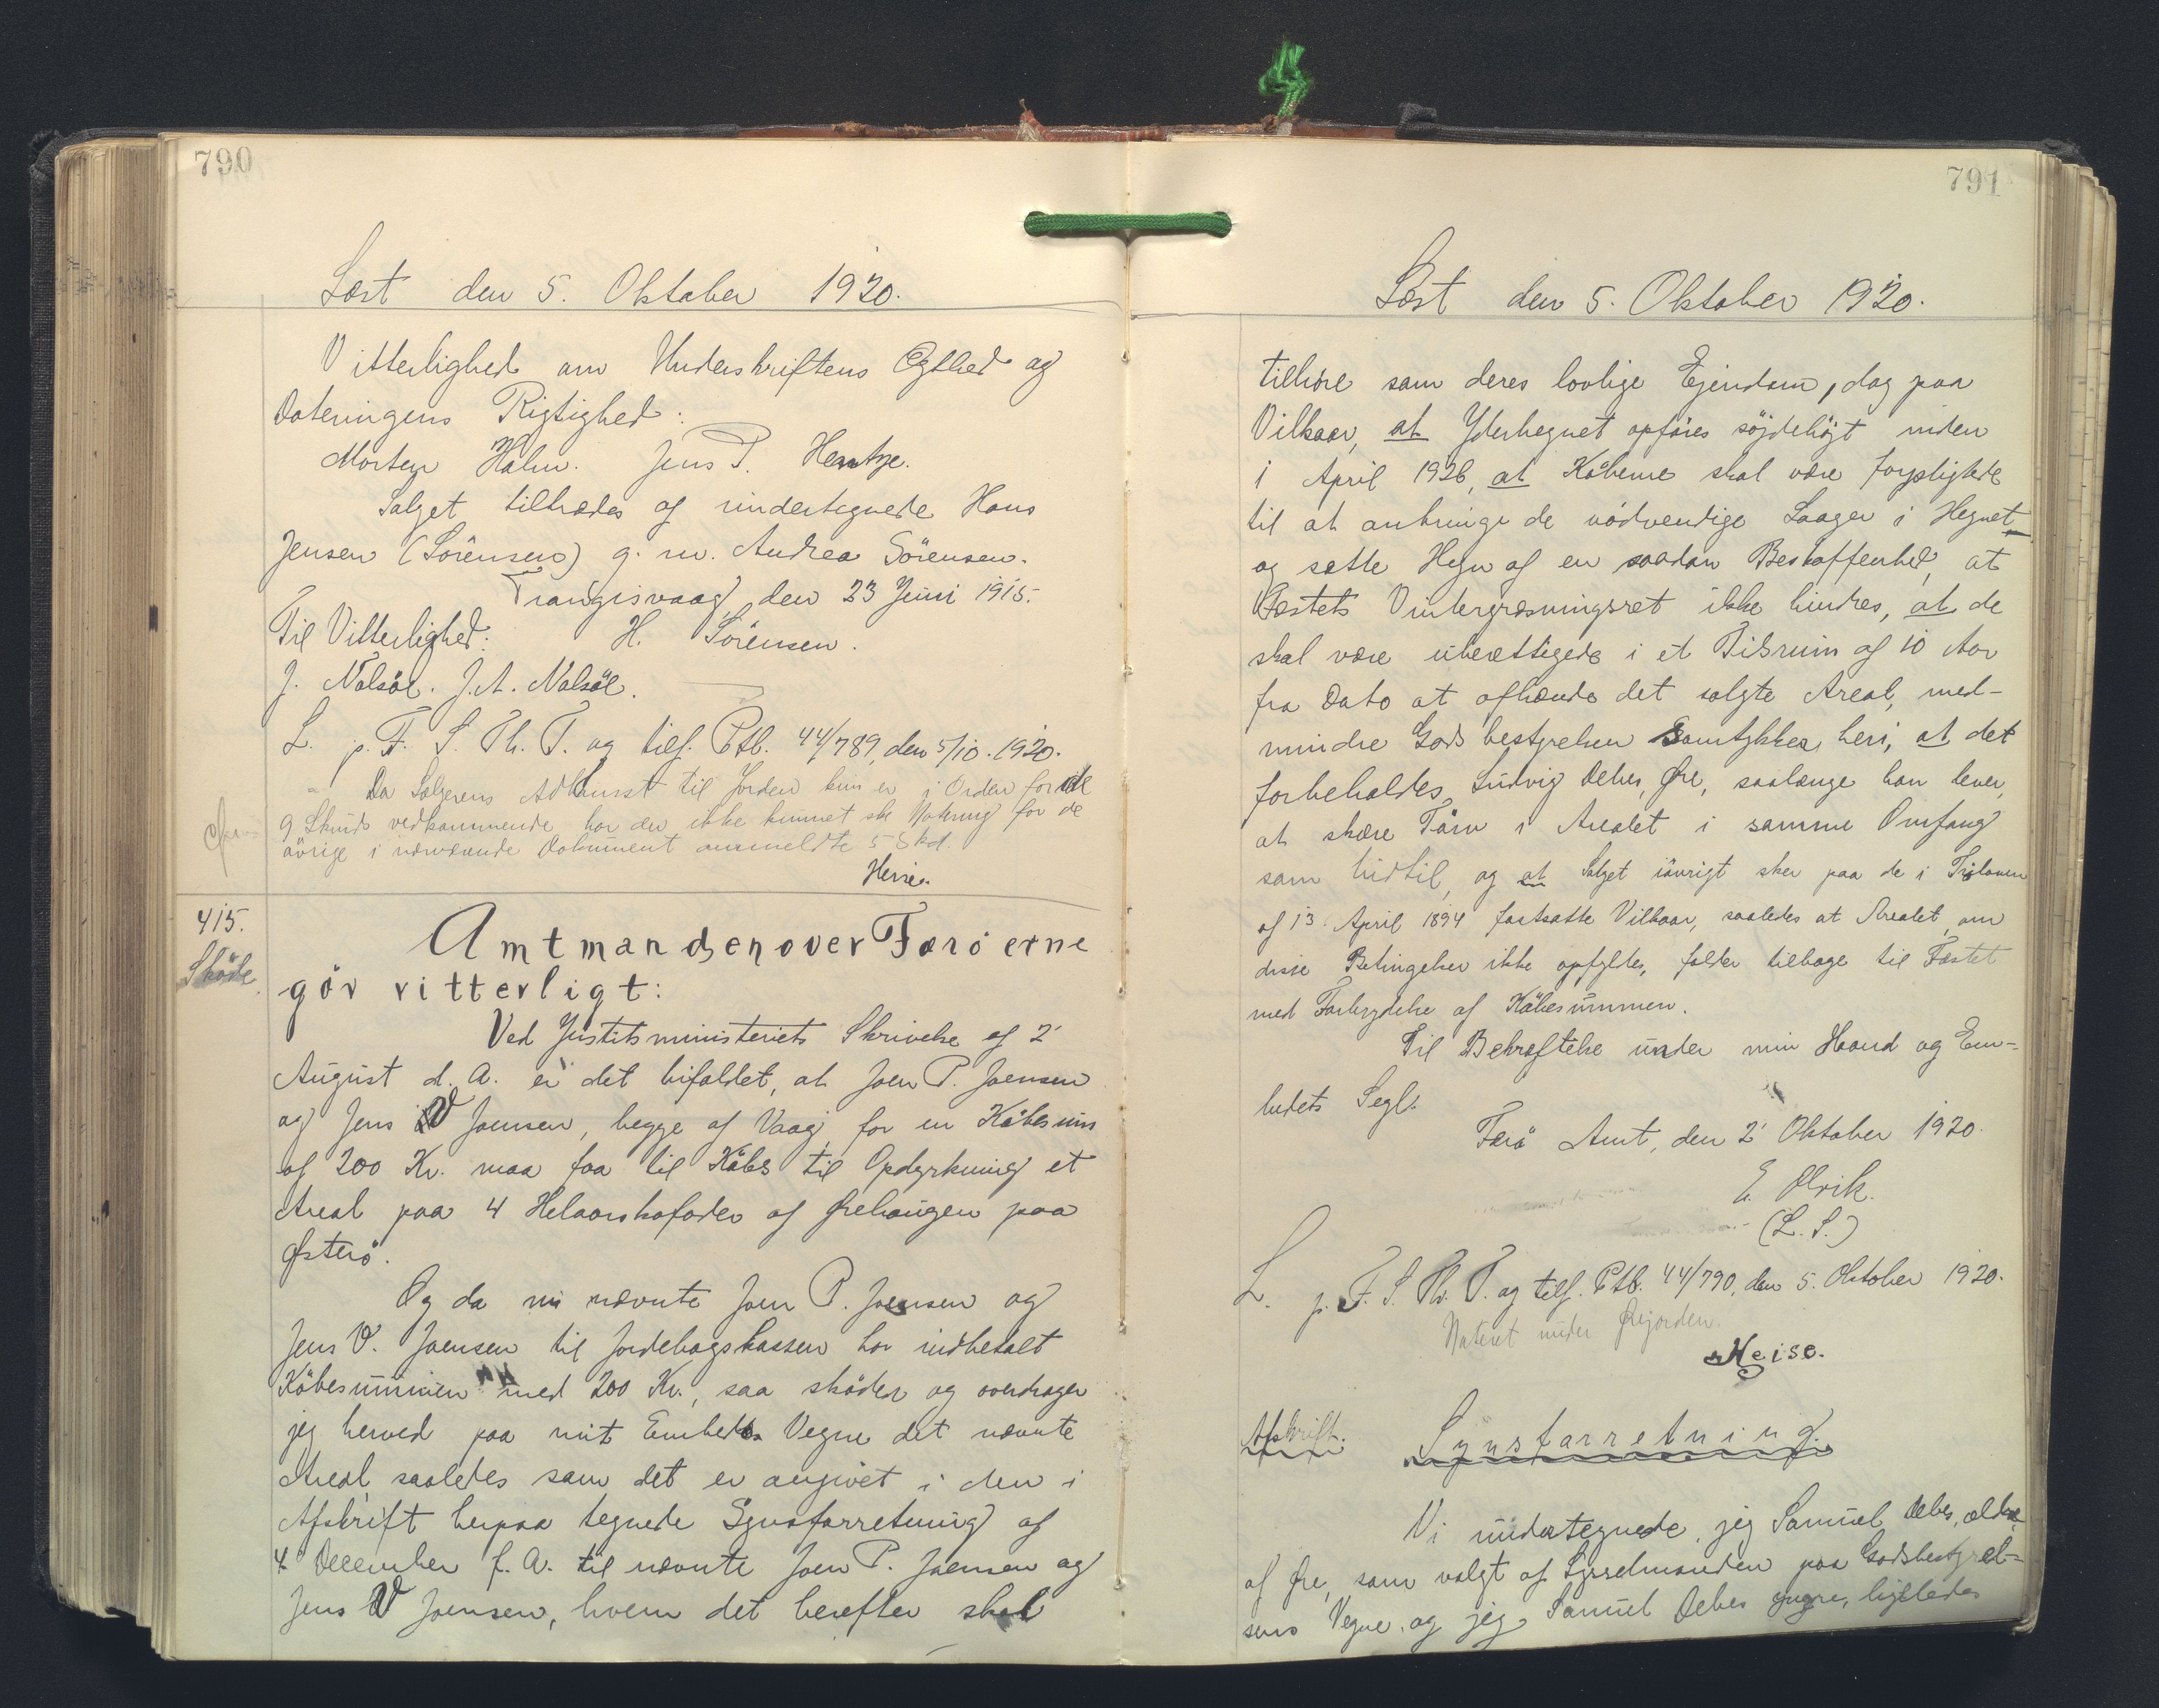 790
Læst den 5. Oktober 1920.
Vitterlighed om Underskriftens Ægthed og
Dateringens Rigtighed:
Morten Holm. Jens P. Hentze.
Salget tiltrædes af undertegnede Hans
Jensen (Sörensen) g. m. Andrea Sörensen.
Trangisvaag, den 23 Juni 1915.
Til Vitterlighed: H. Sörensen.
J. Nolsöe. J. A. Nolsöe.
L. p. F. S. Th. T. og tilf. Ptb. 44/789, den 5/10. 1920.
Da Sælgerens Adkomst til Jorden kun er i Orden for de
9 Skinds vedkommende har der ikke kunnet ske Notering for de
övrige i nærværende Dokument ommeldte 5 Skd.
Heise.
415.
Sköde.
Amtmanden over Færöerne
gör vitterligt:
Ved Justitsministeriets Skrivelse af 2'
August d. A. er det bifaldet, at Joen P. Joensen
og Jens V Joensen, begge af Vaag, for en Köbesum
af 200 Kr. maa faa til Köbs til Opdyrkning et
Areal paa 4 Helaarskofoder af Ørehaugen paa
Østerö.
Og da nu nævnte Joen P. Joensen og
Jens V. Joensen til Jordebogskassen har indbetalt
Köbesummen med 200 Kr., saa sköder og overdrager
jeg herved paa mit Embeds Vegne det nævnte
Areal, saaledes som det er angivet i den i
Afskrift herpaa tegnede Synsforretning af
4' December f. A. til nævnte Joen P. Joensen og
Jens V Joensen, hvem det herefter skal
791
Læst den 5. Oktober 1920.
tilhöre som deres lovlige Ejendom, dog paa
Vilkaar, at Yderhegnet opföres söjdehöjt inden
1 April 1926, at Köberne skal være forpligtede
til at anbringe de nödvendige Laager i Hegnet
og sætte Hegn af en saadan Beskaffenhed, at
Fæstets Vintergræsningsret ikke hindres, at de
skal være uberettigede i et Tidsrum af 10 Aar
fra Dato at afhænde det solgte Areal, med-
mindre Godsbestyrelsen samtykker heri, at det
forbeholdes Ludvig Debes, Øre, saalænge han lever,
at skære Törv i Arealet i samme Omfang
som hidtil, og at Salget iövrigt sker paa de i Lov
af 13' April 1894 fastsatte Vilkaar, saaledes at Arealet, om
disse Betingelser ikke opfyldes, falder tilbage til Fæstet
med Forbrydelse af Köbesummen.
Til Bekræftelse under min Haand og Em-
bedets Segl.
Færö Amt, den 2' Oktober 1920.
E. Olrik.
(L. S.)
L. p. F. S. Th. T. og tilf. Ptb. 44/790, den 5. Oktober 1920.
Noteret under Ørejorden.
Heise.
Afskrift. Synsforretning.
Vi undertegnede, jeg Samuel Debes, ældre,
af Øre, som valgt af Sysselmanden paa Godsbestyrel-
sens Vegne, og jeg Samuel Debes yngre, ligeledes